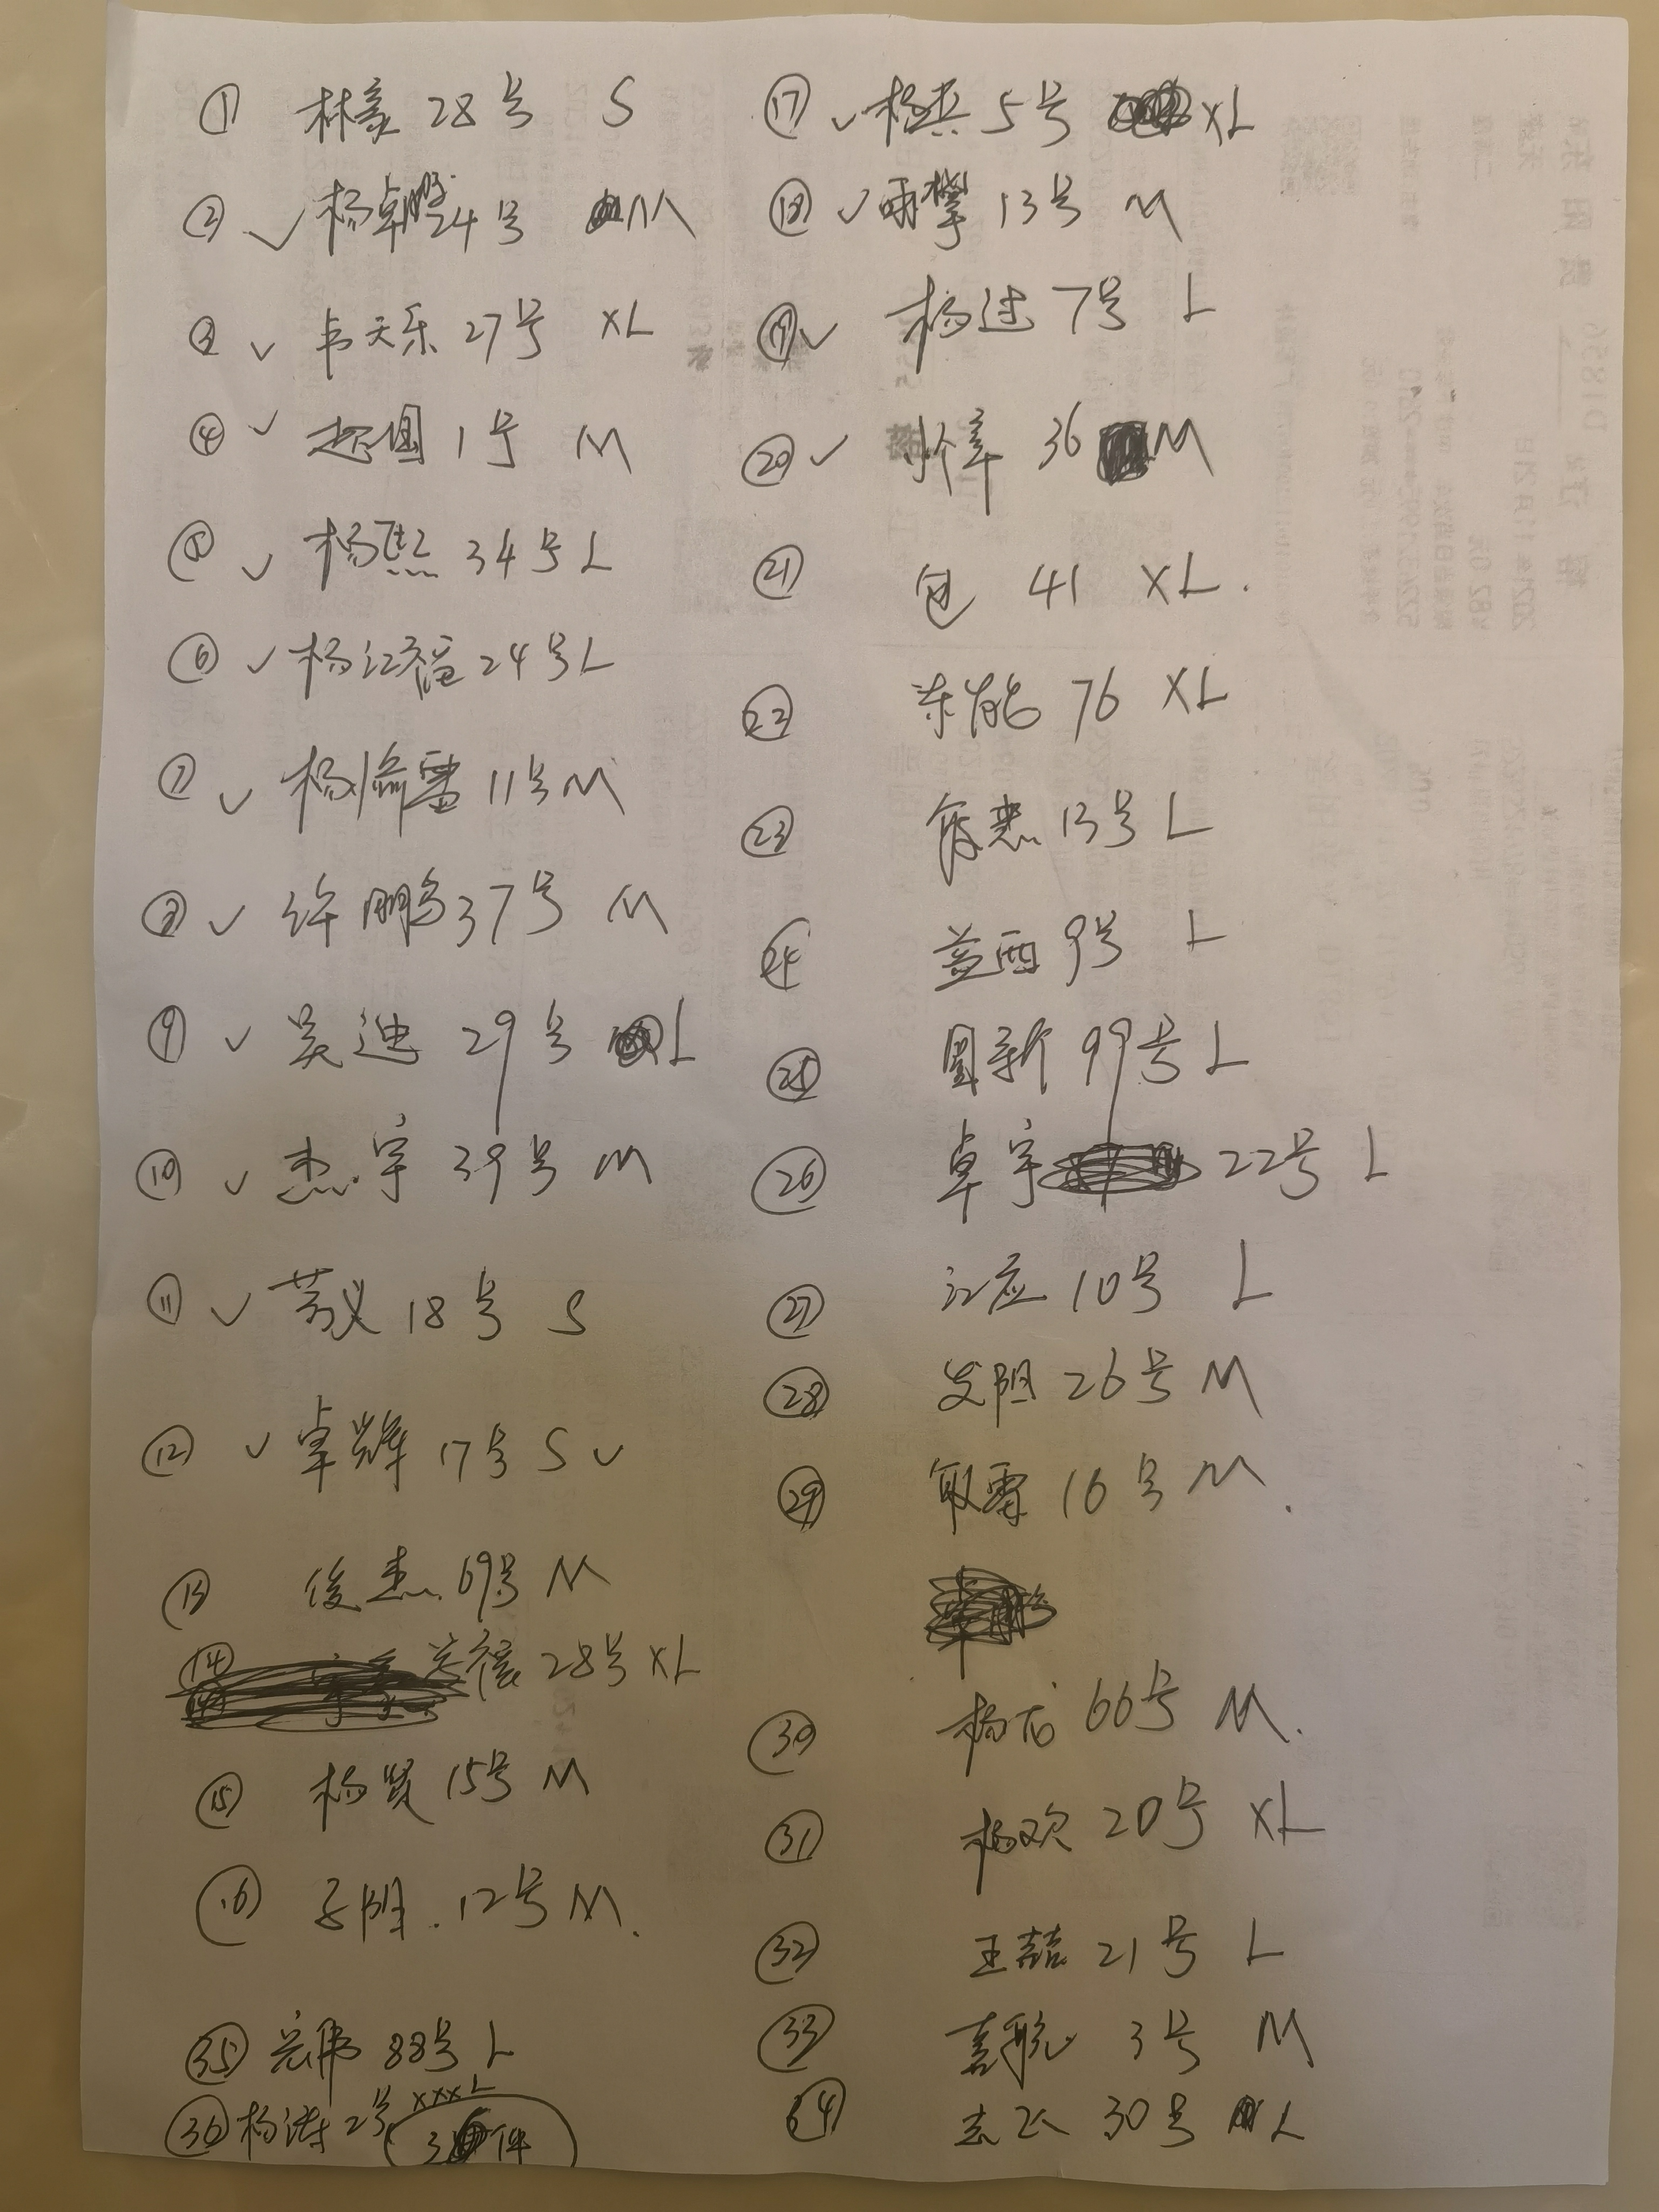 ① 林豪 28号 S
② ✓ 杨卓 24号 M
③ ✓ 韦天乐 27号 XL
④ ✓ 超国 1号 M
⑤ ✓ 杨熙 34号 L
⑥ ✓ 杨江福 24号 L
⑦ ✓ 杨 雷 11号 M
⑧ ✓ 许鹏 37号 M
⑨ ✓ 吴迪 29号 L
⑩ ✓ 杰宇 39号 M
⑪ ✓ 18号 S
⑫ ✓ 卓辉 17号 S ✓
⑬ 俊杰 69号 M
⑭ 28号 XL
⑮ 杨贤 15号 M
⑯ 子阳. 12号 M.
㉟ 88号 L
㊱ 杨涛 2号 XXXL
件
⑰ ✓ 杨兵 5号 XL
⑱ ✓ 13号 M
⑲ ✓ 杨进 7号 L
⑳ ✓ 36 M
㉑ 包 41 XL.
㉒ 76 XL
㉓ 13号 L
㉔ 益西 9号 L
㉕ 国新 99号 L
㉖ 卓宇 22号 L
㉗ 江应 10号 L
㉘ 发阳 26号 M
㉙ 16号 M.
㉚ 杨龙 66号 M.
㉛ 杨欢 20号 XL
㉜ 王喆 21号 L
㉝ 嘉航 3号 M
㉞ 志云 30号 L